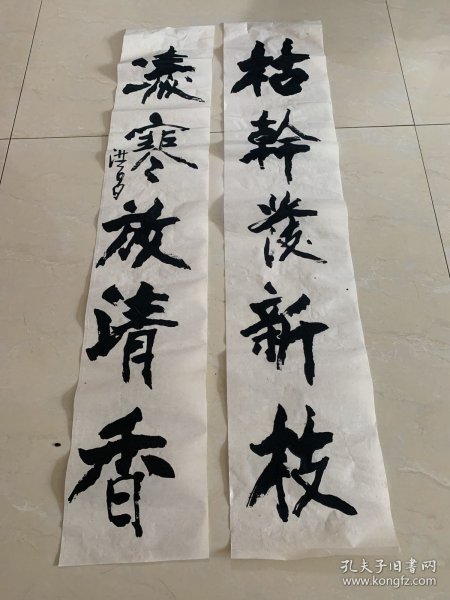 枯幹發新枝
凌寒放清香
孔夫子旧书网
www.kongfz.com